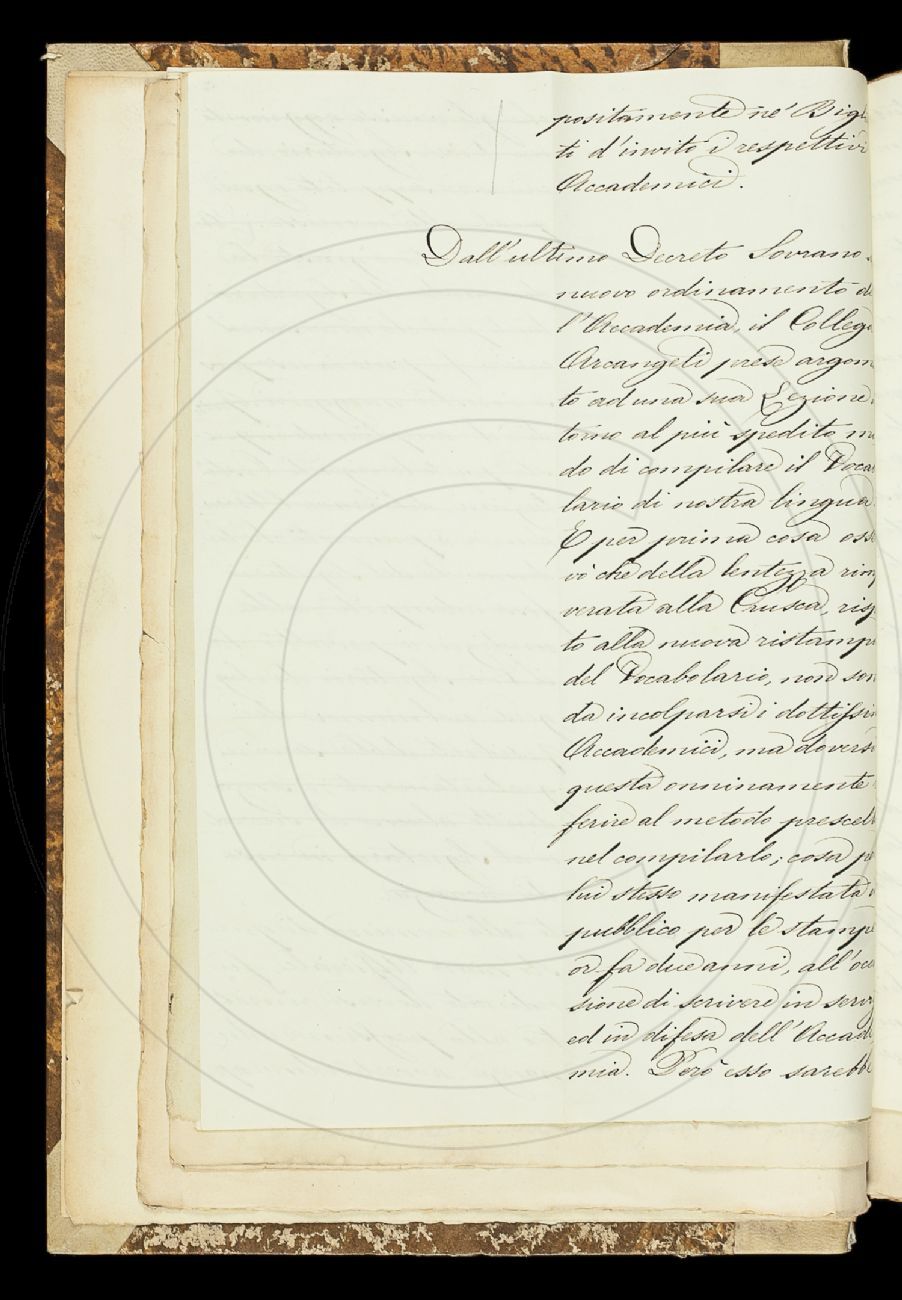 positamente ne' Bigl
ti d'invito i respettivi
Accademici.
Dall'ultimo Decreto Sovrano
nuovo ordinamento de
l'Accademia, il Colleg
Arcangeli prese argom
to ad una sua Lezione
torno al più spedito m
do di compilare il Voca
lario di nostra lingua
E per prima cosa oss
vò che della lentezza rim
verata alla Crusca, risp
to alla nuova ristampa
del Vocabolario, non son
da incolparsi i dottissim
Accademici, ma doversi
questa onninamente
ferire al metodo prescel
nel compilarlo; cosa
lui stesso manifestata
pubblico per le stampe
or fa due anni, all'occ
sione di scrivere in serv
ed in difesa dell'Accad
mia. Però esso sarebbe